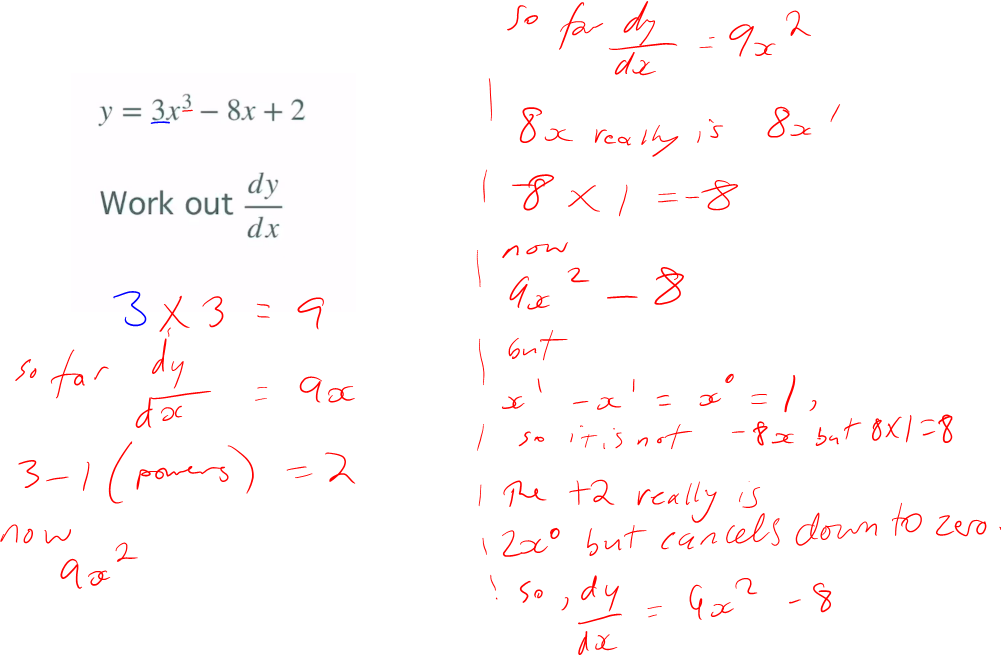 y = 3x³ – 8x + 2
Work out dy/dx
3 × 3 = 9
so far dy/dx = 9x
3 – 1 (powers) = 2
now
9x²
so far dy/dx = 9x²
8x really is 8x¹
-8 × 1 = -8
now
9x² – 8
but
x¹ - x¹ = x⁰ = 1,
so it is not -8x but 8×1=8
The +2 really is
2x⁰ but cancels down to zero.
So, dy/dx = 9x² - 8